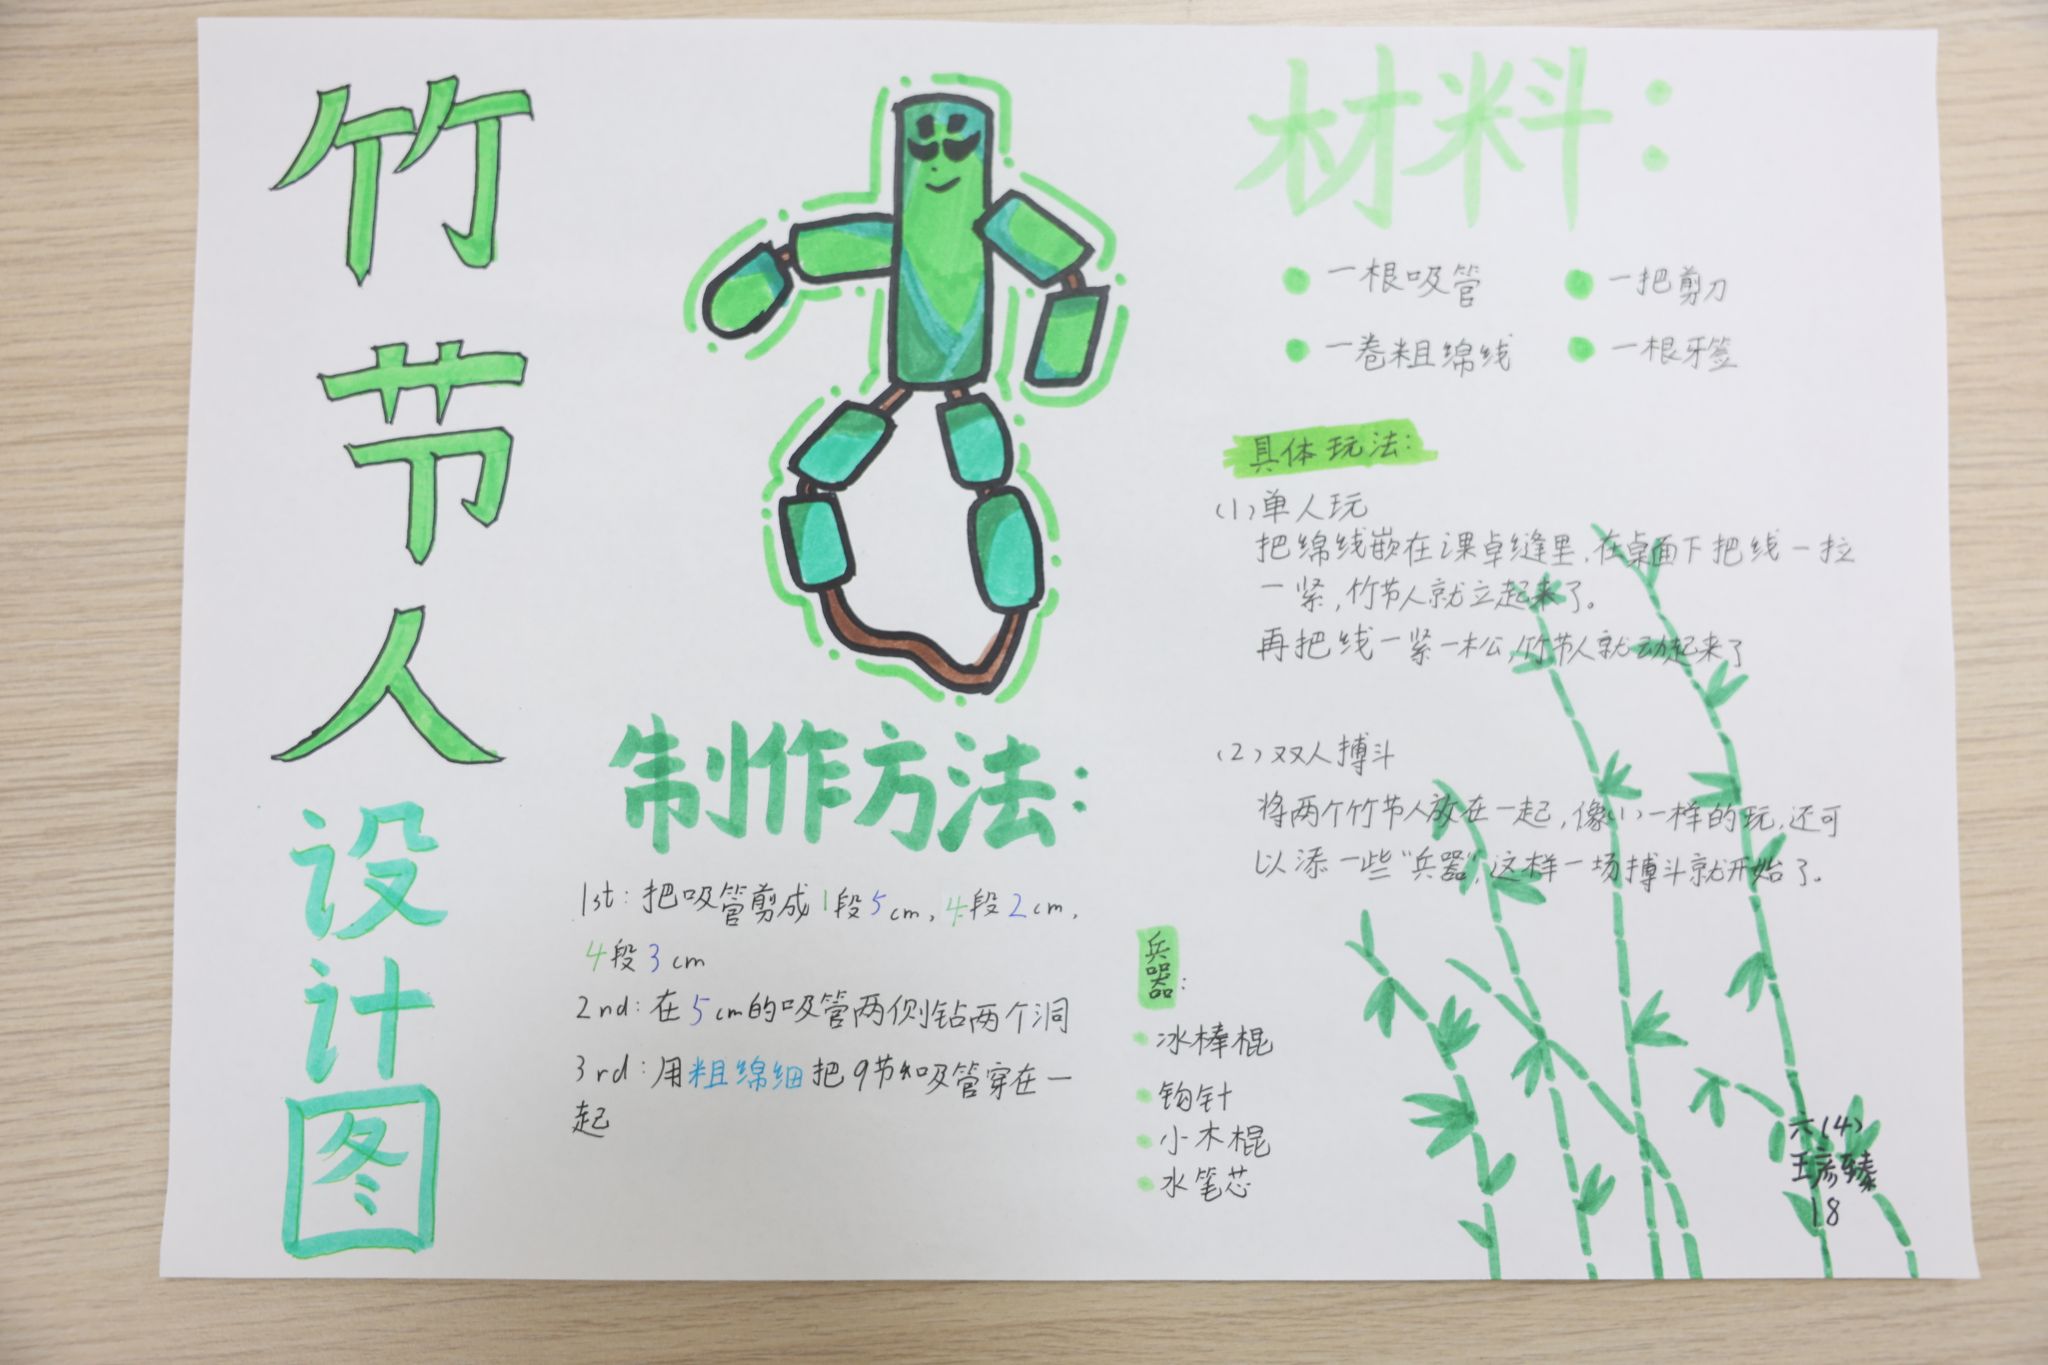 竹节人设计图
材料：
一根吸管
一把剪刀
一卷粗绵线
一根牙签
具体玩法：
(1)单人玩
把绵线嵌在课卓缝里,在桌面下把线一拉
一紧,竹节人就立起来了。
再把线一紧一松,竹节人就动起来了
(2)双人搏斗
将两个竹节人放在一起,像(1)一样的玩,还可
以添一些"兵器",这样一场搏斗就开始了.
制作方法：
1st:把吸管剪成1段5cm,4段2cm,
4段3cm
2nd:在5cm的吸管两侧钻两个洞
3rd:用粗绵细把9节吸管穿在一
起
兵器:
冰棒棍
钩针
小木棍
水笔芯
六(4)
王彦臻
18